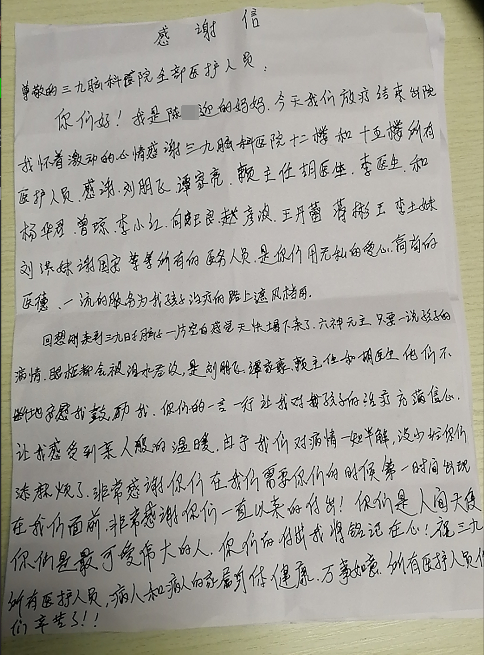 感谢信
尊敬的三九脑科医院全部医护人员:
你们好!我是陈 迎的妈妈,今天我们放疗结束出院
我怀着激动的心情感谢三九脑科医院十二楼和十五楼所有
医护人员.感谢.刘朋飞 谭家亮.赖主任 胡医生.李医生.和
杨华君.曾琼.李小红.向 赵彦波.王丹茜 蒋彬 王 李土妹
刘洪妹 谢国容等等所有的医务人员.是你们用无私的爱心.高尚的
医德.一流的服务为我孩子治疗的路上遮风挡雨.
回想刚来到三九时脑子一片空白感觉天快塌下来了.六神无主 只要一说孩子的
病情.眼框都会被泪水 是刘朋飞 谭家亮.赖主任和胡医生他们不
断地安慰我鼓励我.你们的一言一行让我对我孩子的治疗充满信心.
让我感受到亲人般的温暖.由于我们对病情一知半解,没少给你们
添麻烦了.非常感谢你们在我们需要你们的时候第一时间出现
在我们面前.非常感谢你们一直以来的付出!你们是人间天使
你们是最可爱伟大的人.你们的付出我将铭记在心!祝三九
所有医护人员,病人和病人的家属身体健康.万事如意.所有医护人员你
们辛苦了!!